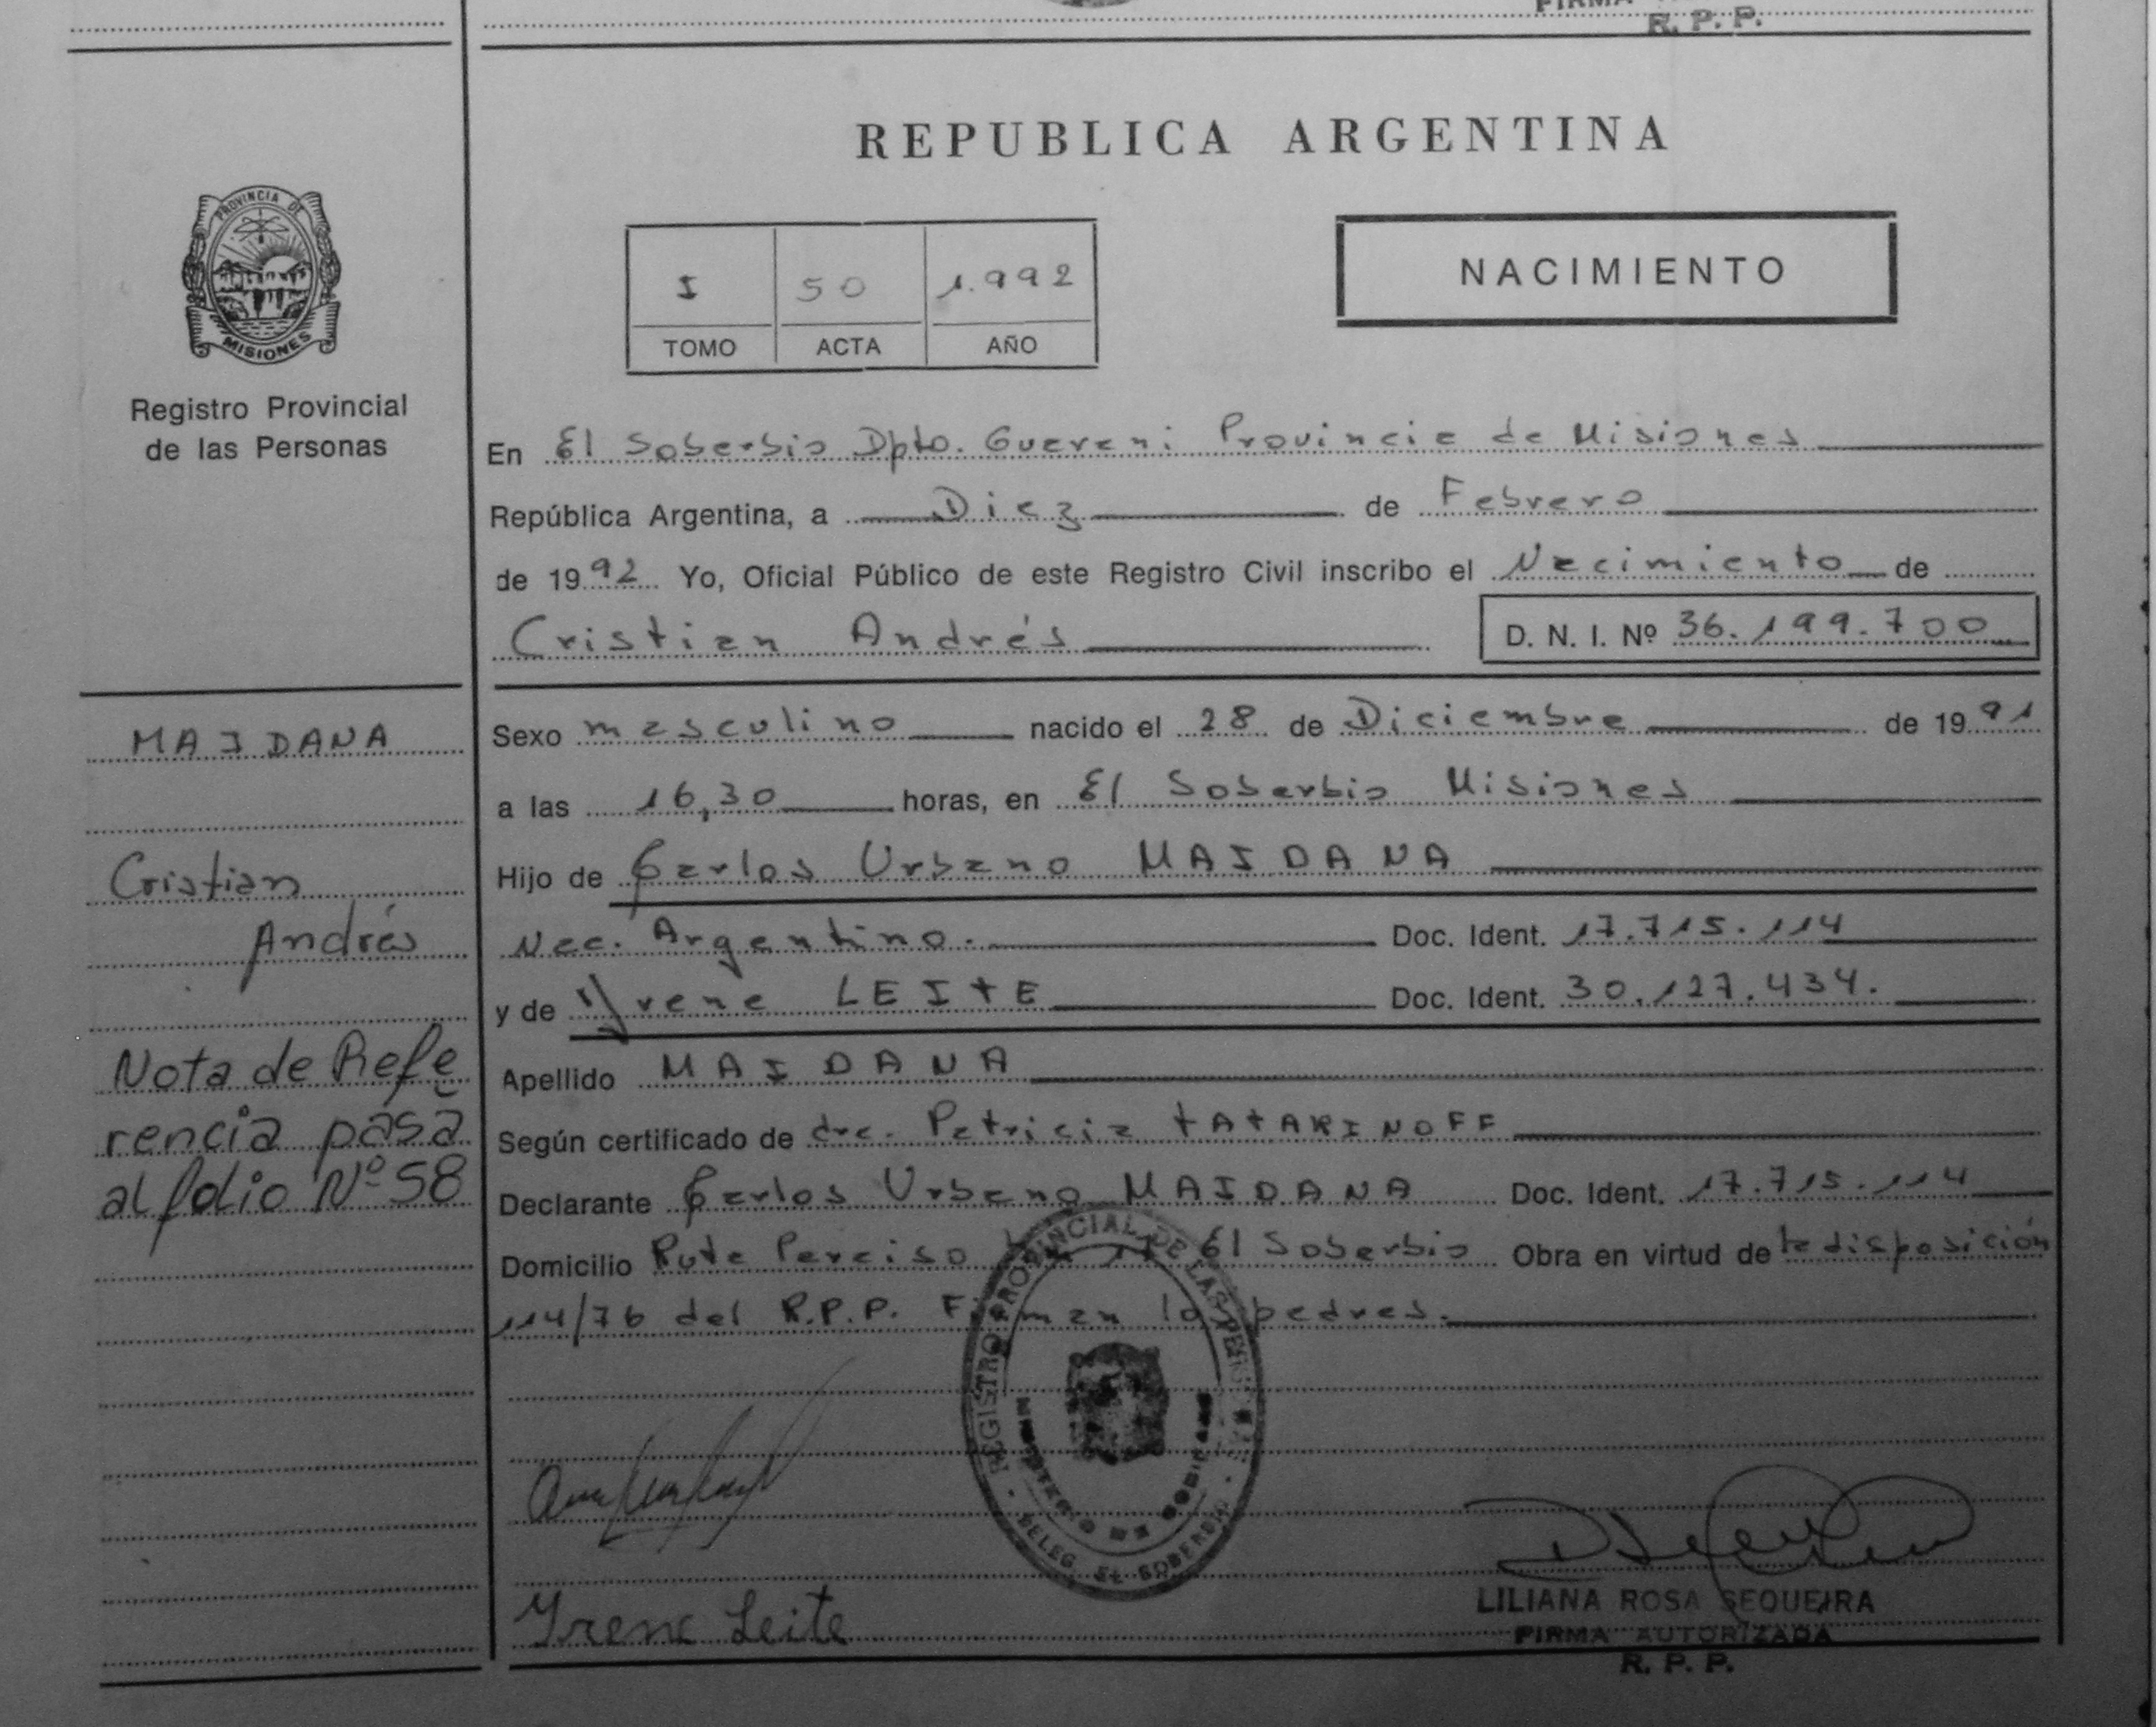 R. P. P.
REPUBLICA ARGENTINA
PROVINCIA DE
MISIONES
Registro Provincial
de las Personas
I 50 1.992
TOMO ACTA AÑO
NACIMIENTO
En El Soberbio Dpto. Guarani Provincia de Misiones
República Argentina, a Diez de Febrero
de 1992 Yo, Oficial Público de este Registro Civil inscribo el Nacimiento de
Cristian Andrés D. N. I. Nº 36.199.700
MAIDANA
Cristian
Andrés
Nota de Refe
rencia pasa
al folio Nº 58
Sexo masculino nacido el 28 de Diciembre de 1991
a las 16,30 horas, en El Soberbio Misiones
Hijo de Carlos Urbano MAIDANA
Nac. Argentino. Doc. Ident. 17.715.114
y de Yrene LEITE Doc. Ident. 30.127.434.
Apellido MAIDANA
Según certificado de dra. Patricia TATARINOFF
Declarante Carlos Urbano MAIDANA Doc. Ident. 17.715.114
Domicilio Ruta Paraiso 17 El Soberbio Obra en virtud de la disposición
114/76 del R.P.P. Firman los padres.
REGISTRO PROVINCIAL DE LAS
DELEG. EL SOBERBIO
Yrene Leite
LILIANA ROSA SEQUEIRA
FIRMA AUTORIZADA
R. P. P.